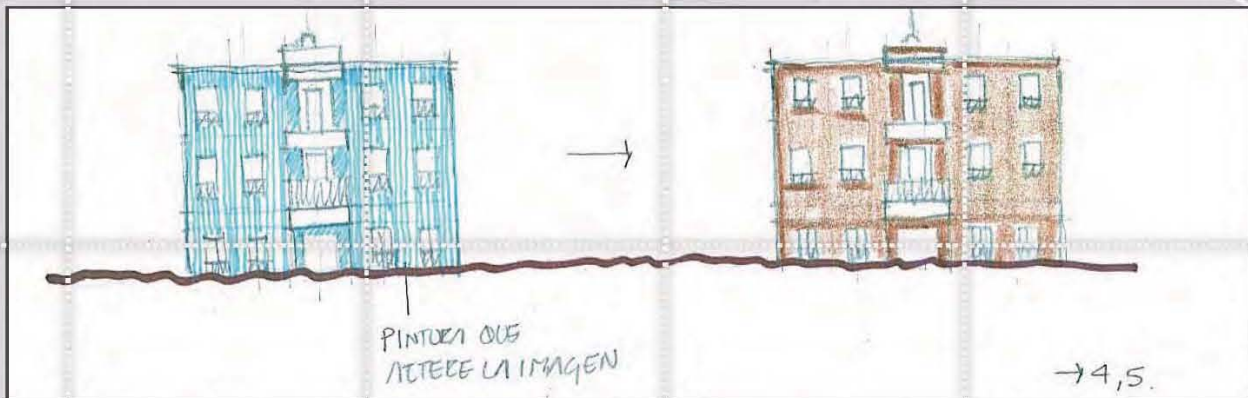 PINTURA QUE
ALTERE LA IMAGEN
→ 4,5.